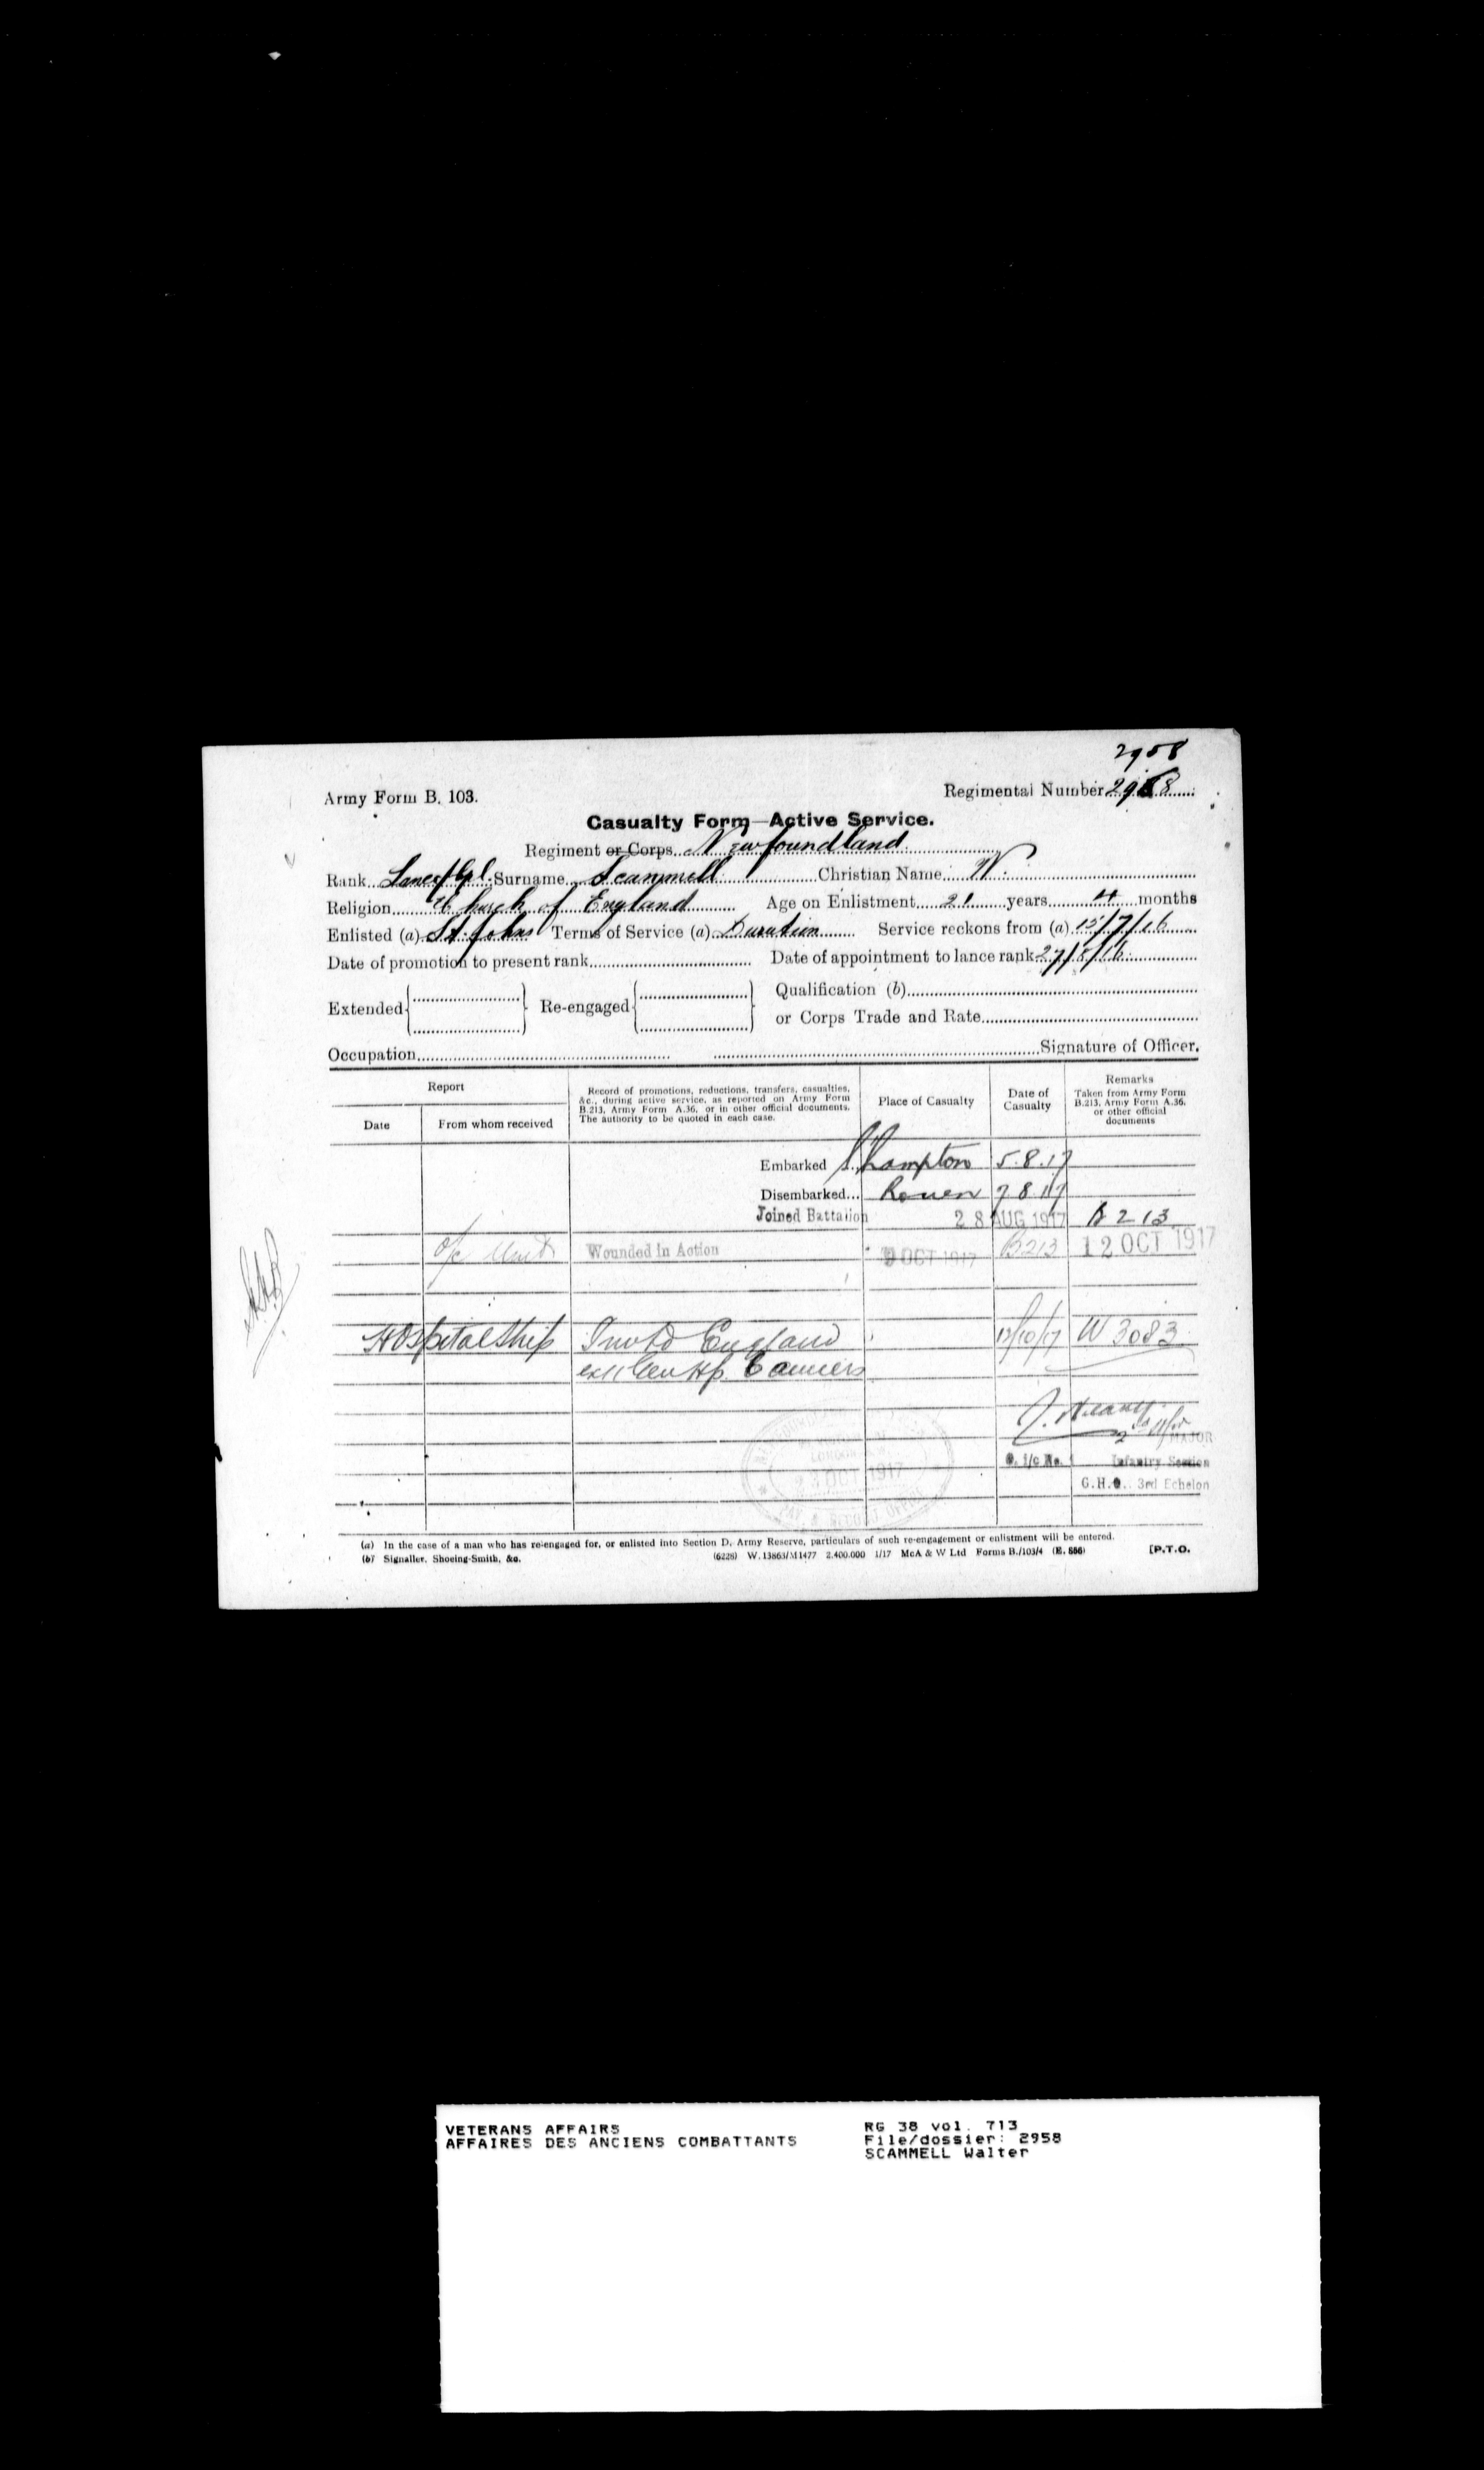 2958
Army Form B. 103.
Regimental Number 2958
Casualty Form—Active Service.
Regiment or Corps Newfoundland
Rank Lance/Cpl. Surname Scammell Christian Name W.
Religion Church of England Age on Enlistment 21 years 4 months
Enlisted (a) St. Johns Terms of Service (a) Duration Service reckons from (a) 15/7/16
Date of promotion to present rank Date of appointment to lance rank
Extended Re-engaged Qualification (b)
or Corps Trade and Rate
Occupation Signature of Officer.
Report
Date From whom received
Record of promotions, reductions, transfers, casualties,
&c., during active service, as reported on Army Form
B.213, Army Form A.36, or in other official documents.
The authority to be quoted in each case.
Place of Casualty
Date of
Casualty
Remarks
Taken from Army Form
B.213, Army Form A.36,
or other official
documents
Embarked S'hampton 5.8.17
Disembarked... Rouen 7 8 17
Joined Battalion 28 AUG 1917 B 213
O/c Unit Wounded in Action 9 OCT 1917 B213 12 OCT 1917
Hospital Ship Invld England 12/10/17 W 3083
ex 11 Gen Hp. Camiers
MAJOR
i/c No. 1 Infantry Section
G.H.Q. 3rd Echelon
LONDON
23 OCT 1917
PAY & RECORD OFFICE
(a) In the case of a man who has re-engaged for, or enlisted into Section D, Army Reserve, particulars of such re-engagement or enlistment will be entered.
(b) Signaller, Shoeing-Smith, &c. (6228) W.13863/M1477 2,400,000 1/17 McA & W Ltd Forms B./103/4 (E. 686) [P.T.O.
VETERANS AFFAIRS
AFFAIRES DES ANCIENS COMBATTANTS
RG 38 vol. 713
File/dossier: 2958
SCAMMELL Walter